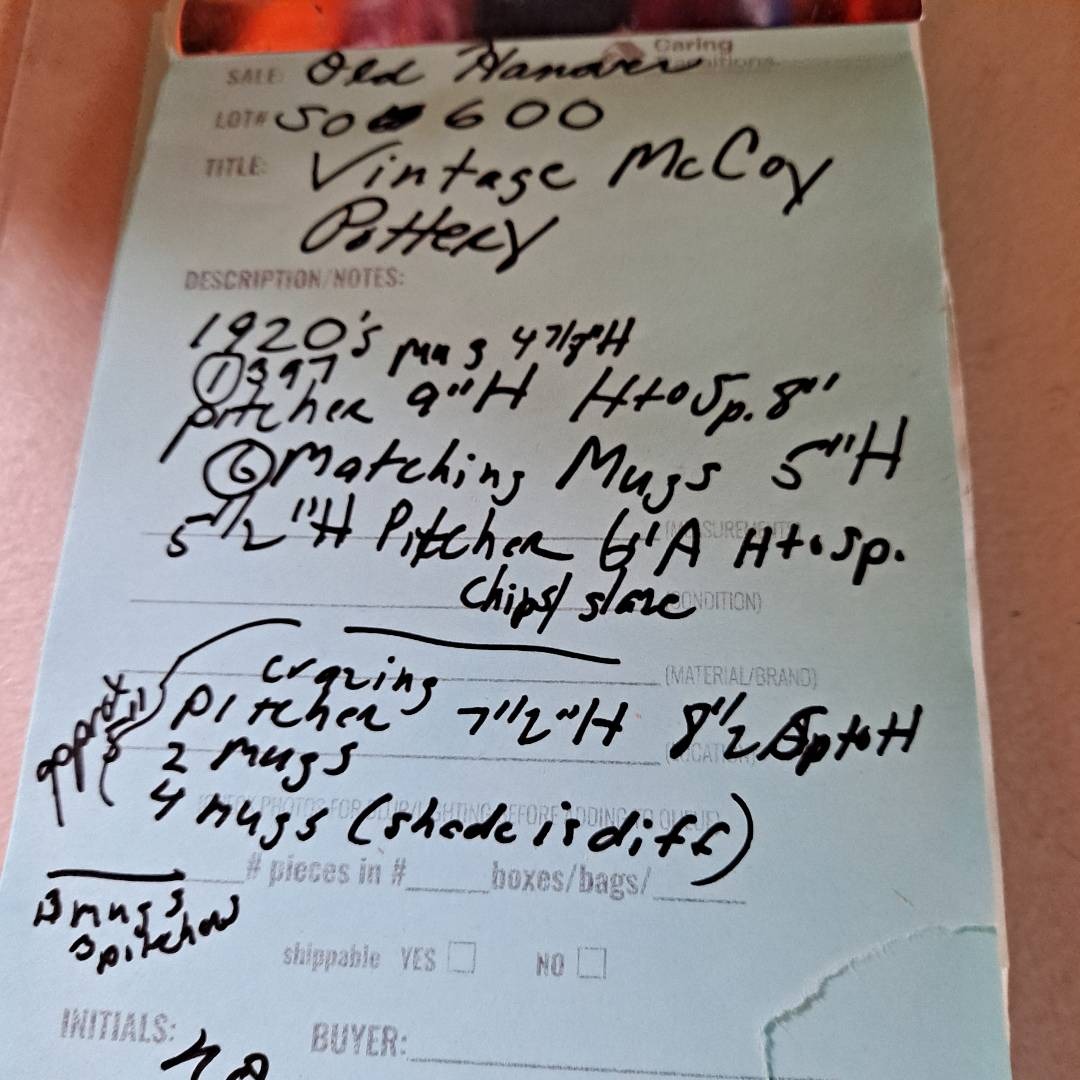 Caring
SALE: Old Hanover
LOT# 50 600
TITLE: Vintage McCoy
Pottery
DESCRIPTION/NOTES:
1920's mug 4 7/8"H
① 397
pitcher 9"H H to Sp. 8"
⑥ Matching Mugs 5"H
5 1/2"H Pitcher 6" H to Sp.
(MEASUREMENTS)
chips/ glaze (CONDITION)
crazing (MATERIAL/BRAND)
approx 5"
pitcher 7 1/2"H 8 1/2 Sp to H
2 mugs (LOCATION)
(CHECK PHOTOS FOR BLUR/LIGHTING BEFORE ADDING TO QUEUE)
4 mugs (shade is diff)
# pieces in # boxes/bags/
13 mugs
3 pitchers
shippable YES NO
INITIALS: BUYER: